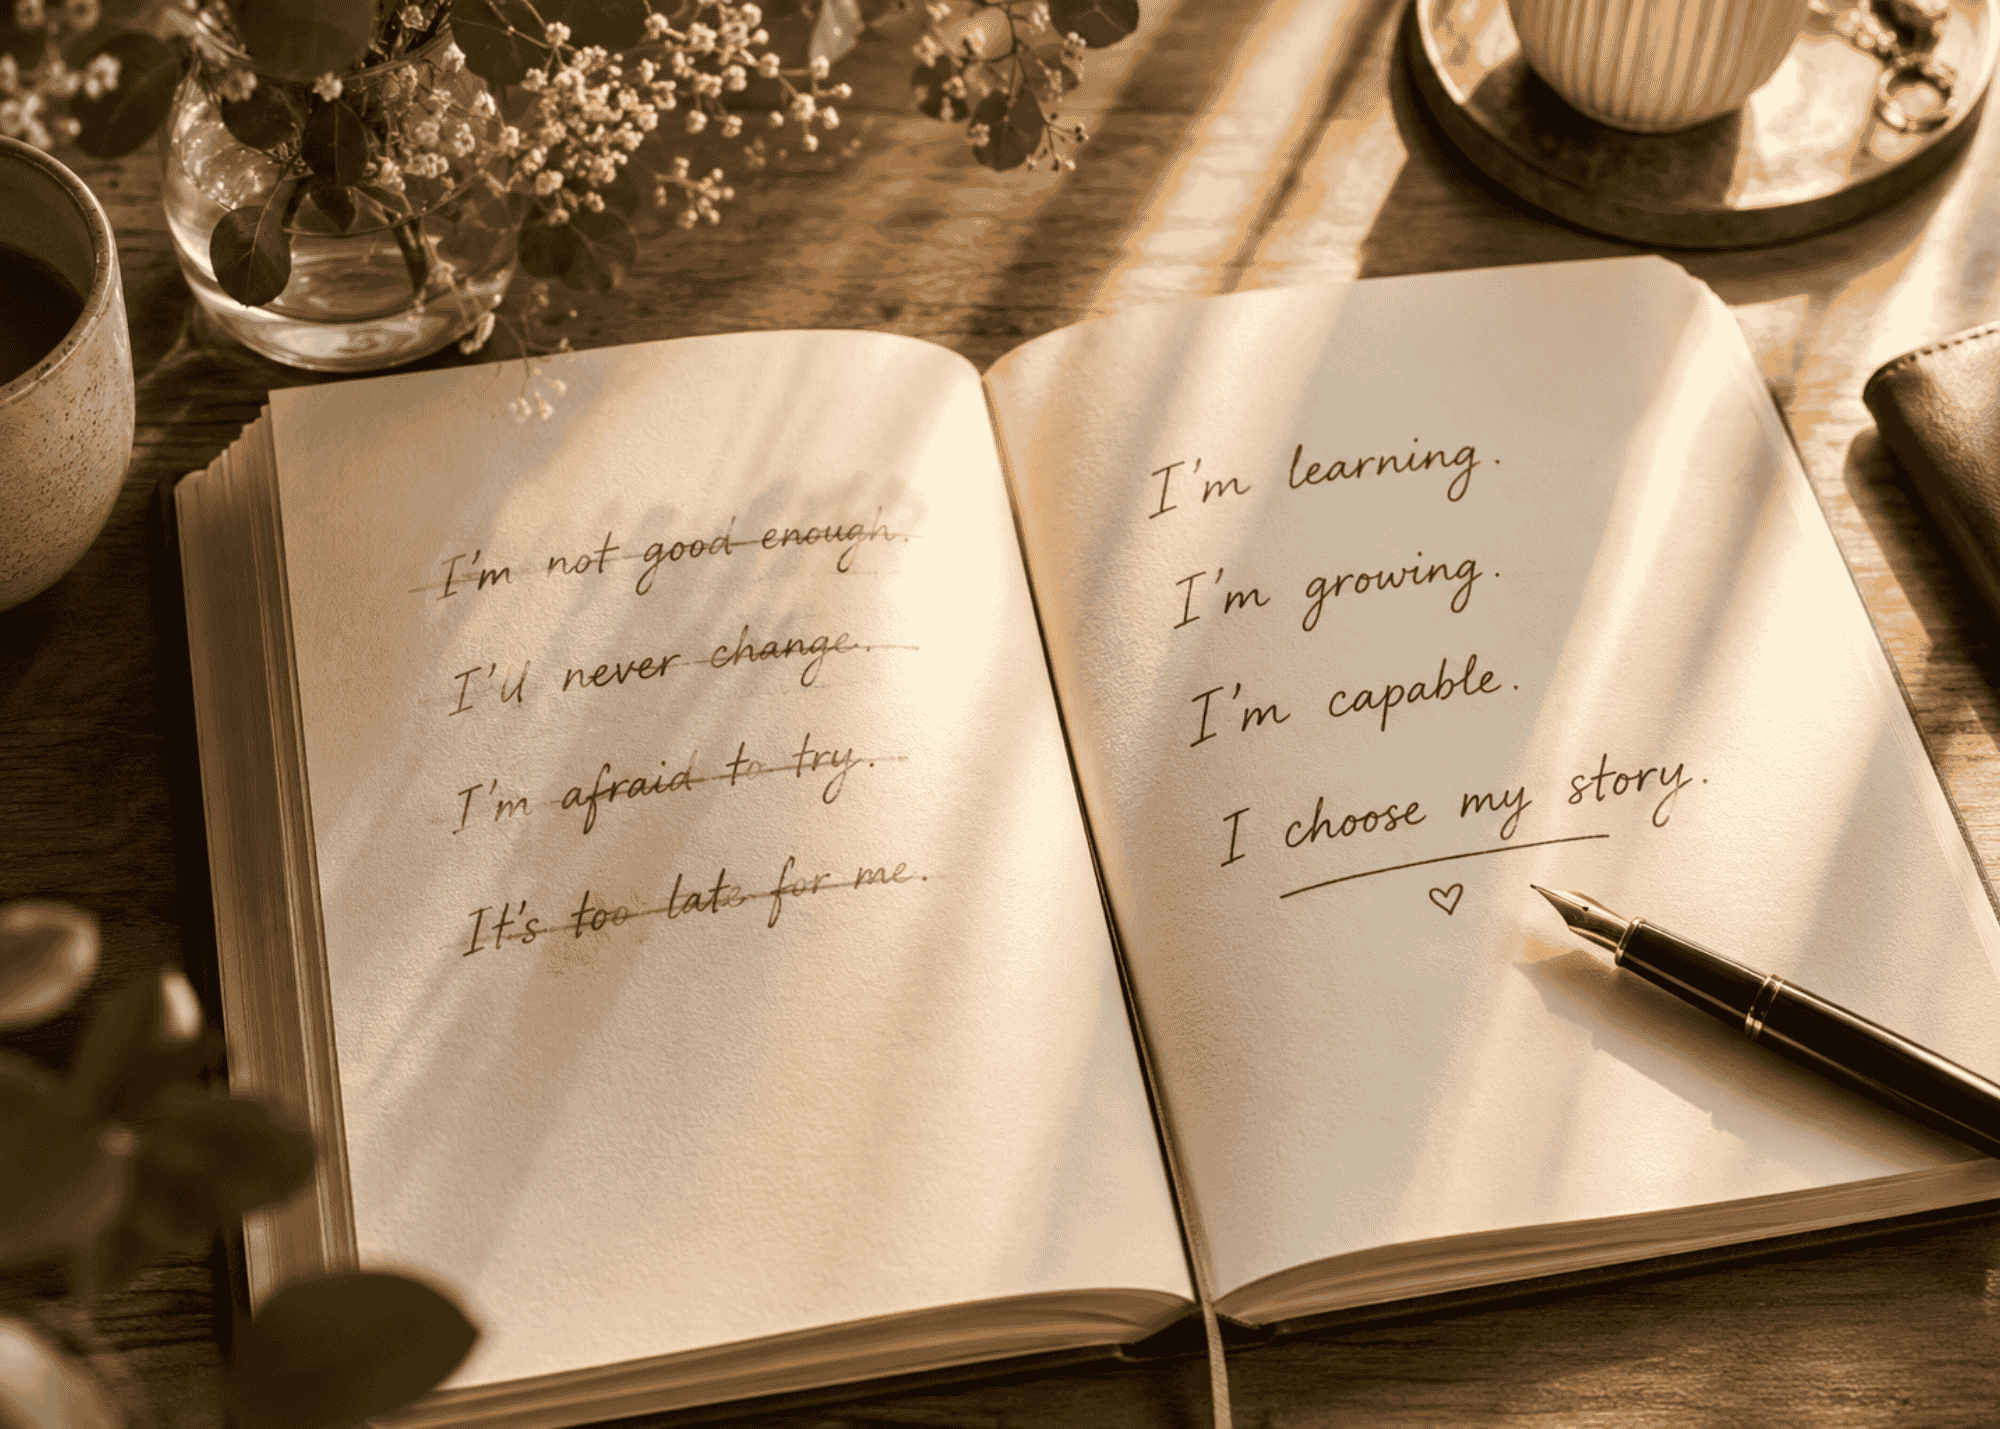 I'm not good enough.
I'll never change.
I'm afraid to try.
It's too late for me.
I'm learning.
I'm growing.
I'm capable.
I choose my story.